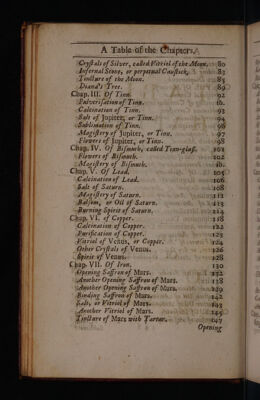 A Table of the Chapters.
Crystals of Silver, called Vitriol of the Moon. 80
Infernal Stone, or perpetual Caustick. 83
Tincture of the Moon. 85
Diana's Tree. 89
Chap. III. Of Tinn. 92
Pulverisation of Tinn. ib.
Calcination of Tinn. 93
Salt of Jupiter, or Tinn. 94
Sublimation of Tinn. 96
Magistery of Jupiter, or Tinn. 97
Flowers of Jupiter, or Tinn. 98
Chap. IV. Of Bismuth, called Tean-glass. 101
Flowers of Bismuth. 102
Magistery of Bismuth. ib.
Chap. V. Of Lead. 105
Calcination of Lead. 106
Salt of Saturn. 108
Magistery of Saturn. 111
Balsom, or Oil of Saturn. 112
Burning Spirit of Saturn. 114
Chap. VI. of Copper. 118
Calcination of Copper. 122
Purification of Copper. 123
Vitriol of Venus, or Copper. 124
Other Crystals of Venus. 126
Spirit of Venus. 128
Chap. VII. Of Iron. 130
Opening Saffron of Mars. 132
Another Opening Saffron of Mars. 138
Another Opening Saffron of Mars. 139
Binding Saffron of Mars. 142
Salt, or Vitriol of Mars. 143
Another Vitriol of Mars. 145
Tincture of Mars with Tartar. 147
Opening